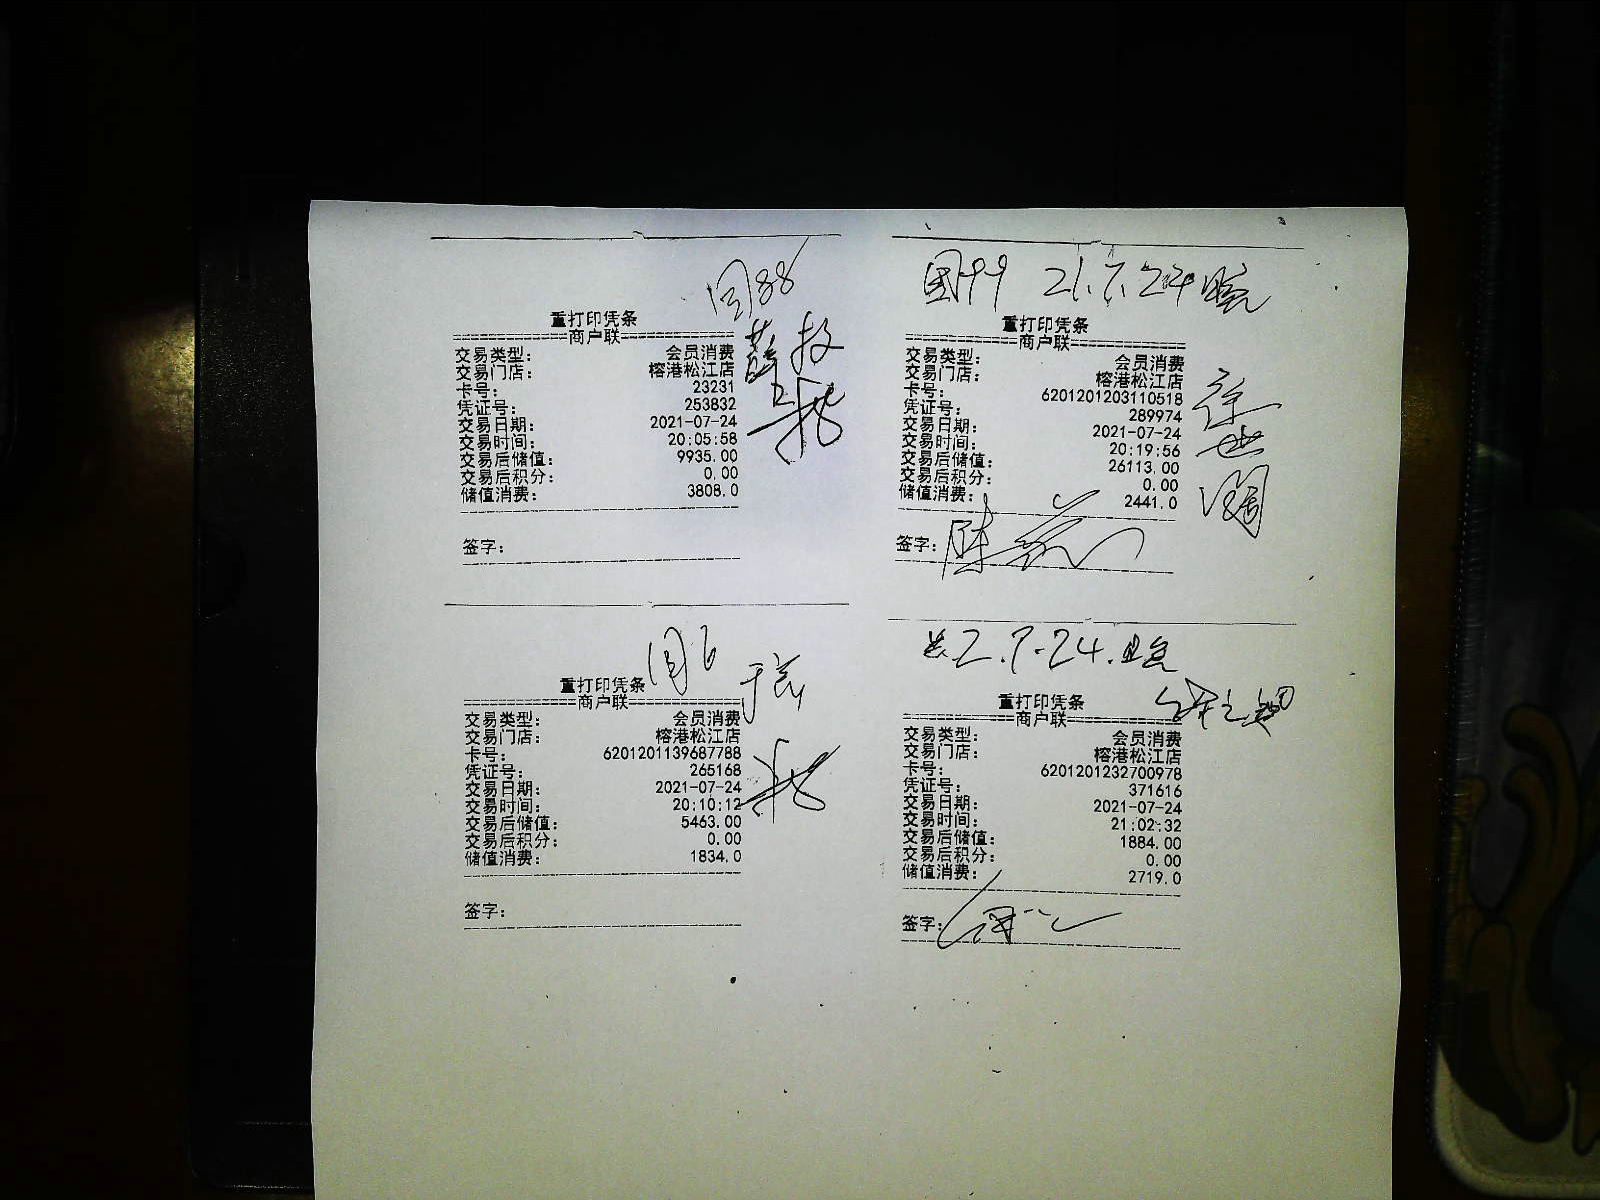 88
重打印凭条
============商户联============
交易类型: 会员消费
交易门店: 榕港松江店
卡号: 23231
凭证号: 253832
交易日期: 2021-07-24
交易时间: 20:05:58
交易后储值: 9935.00
交易后积分: 0.00
储值消费: 3808.0
签字:
21.7.24 晚
重打印凭条
============商户联============
交易类型: 会员消费
交易门店: 榕港松江店
卡号: 6201201203110518
凭证号: 289974
交易日期: 2021-07-24
交易时间: 20:19:56
交易后储值: 26113.00
交易后积分: 0.00
储值消费: 2441.0
签字:
重打印凭条
============商户联============
交易类型: 会员消费
交易门店: 榕港松江店
卡号: 6201201139687788
凭证号: 265168
交易日期: 2021-07-24
交易时间: 20:10:12
交易后储值: 5463.00
交易后积分: 0.00
储值消费: 1834.0
签字:
重打印凭条
============商户联============
交易类型: 会员消费
交易门店: 榕港松江店
卡号: 6201201232700978
凭证号: 371616
交易日期: 2021-07-24
交易时间: 21:02:32
交易后储值: 1884.00
交易后积分: 0.00
储值消费: 2719.0
签字: